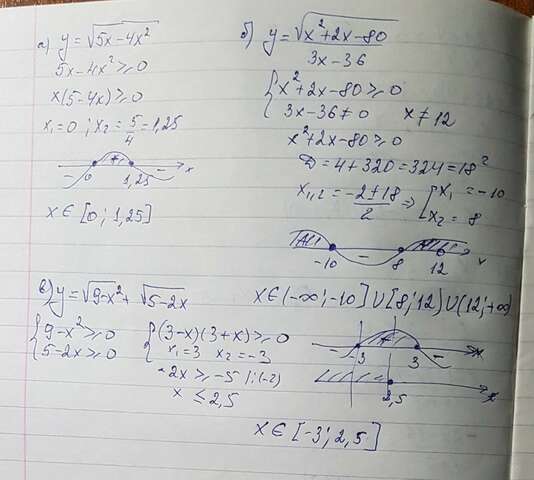 а) y = √(5x-4x²)
5x-4x² ≥ 0
x(5-4x) ≥ 0
x₁=0 ; x₂ = 5/4 = 1,25
- + -
0 1,25 x
x ∈ [0; 1,25]
б) y = √(x²+2x-80) / (3x-36)
{ x²+2x-80 ≥ 0
{ 3x-36 ≠ 0 x ≠ 12
x²+2x-80 ≥ 0
D = 4+320 = 324 = 18²
x₁,₂ = (-2±18)/2 ⇒ { x₁ = -10
{ x₂ = 8
-
-10 8 12 x
x ∈ (-∞; -10] ∪ [8; 12) ∪ (12; +∞)
в) y = √(9-x²) + √(5-2x)
{ 9-x² ≥ 0 { (3-x)(3+x) ≥ 0
{ 5-2x ≥ 0 x₁=3 x₂=-3
-2x ≥ -5 |:(-2)
x ≤ 2,5
- + -
-3 3 x
2,5 x
x ∈ [-3; 2,5]